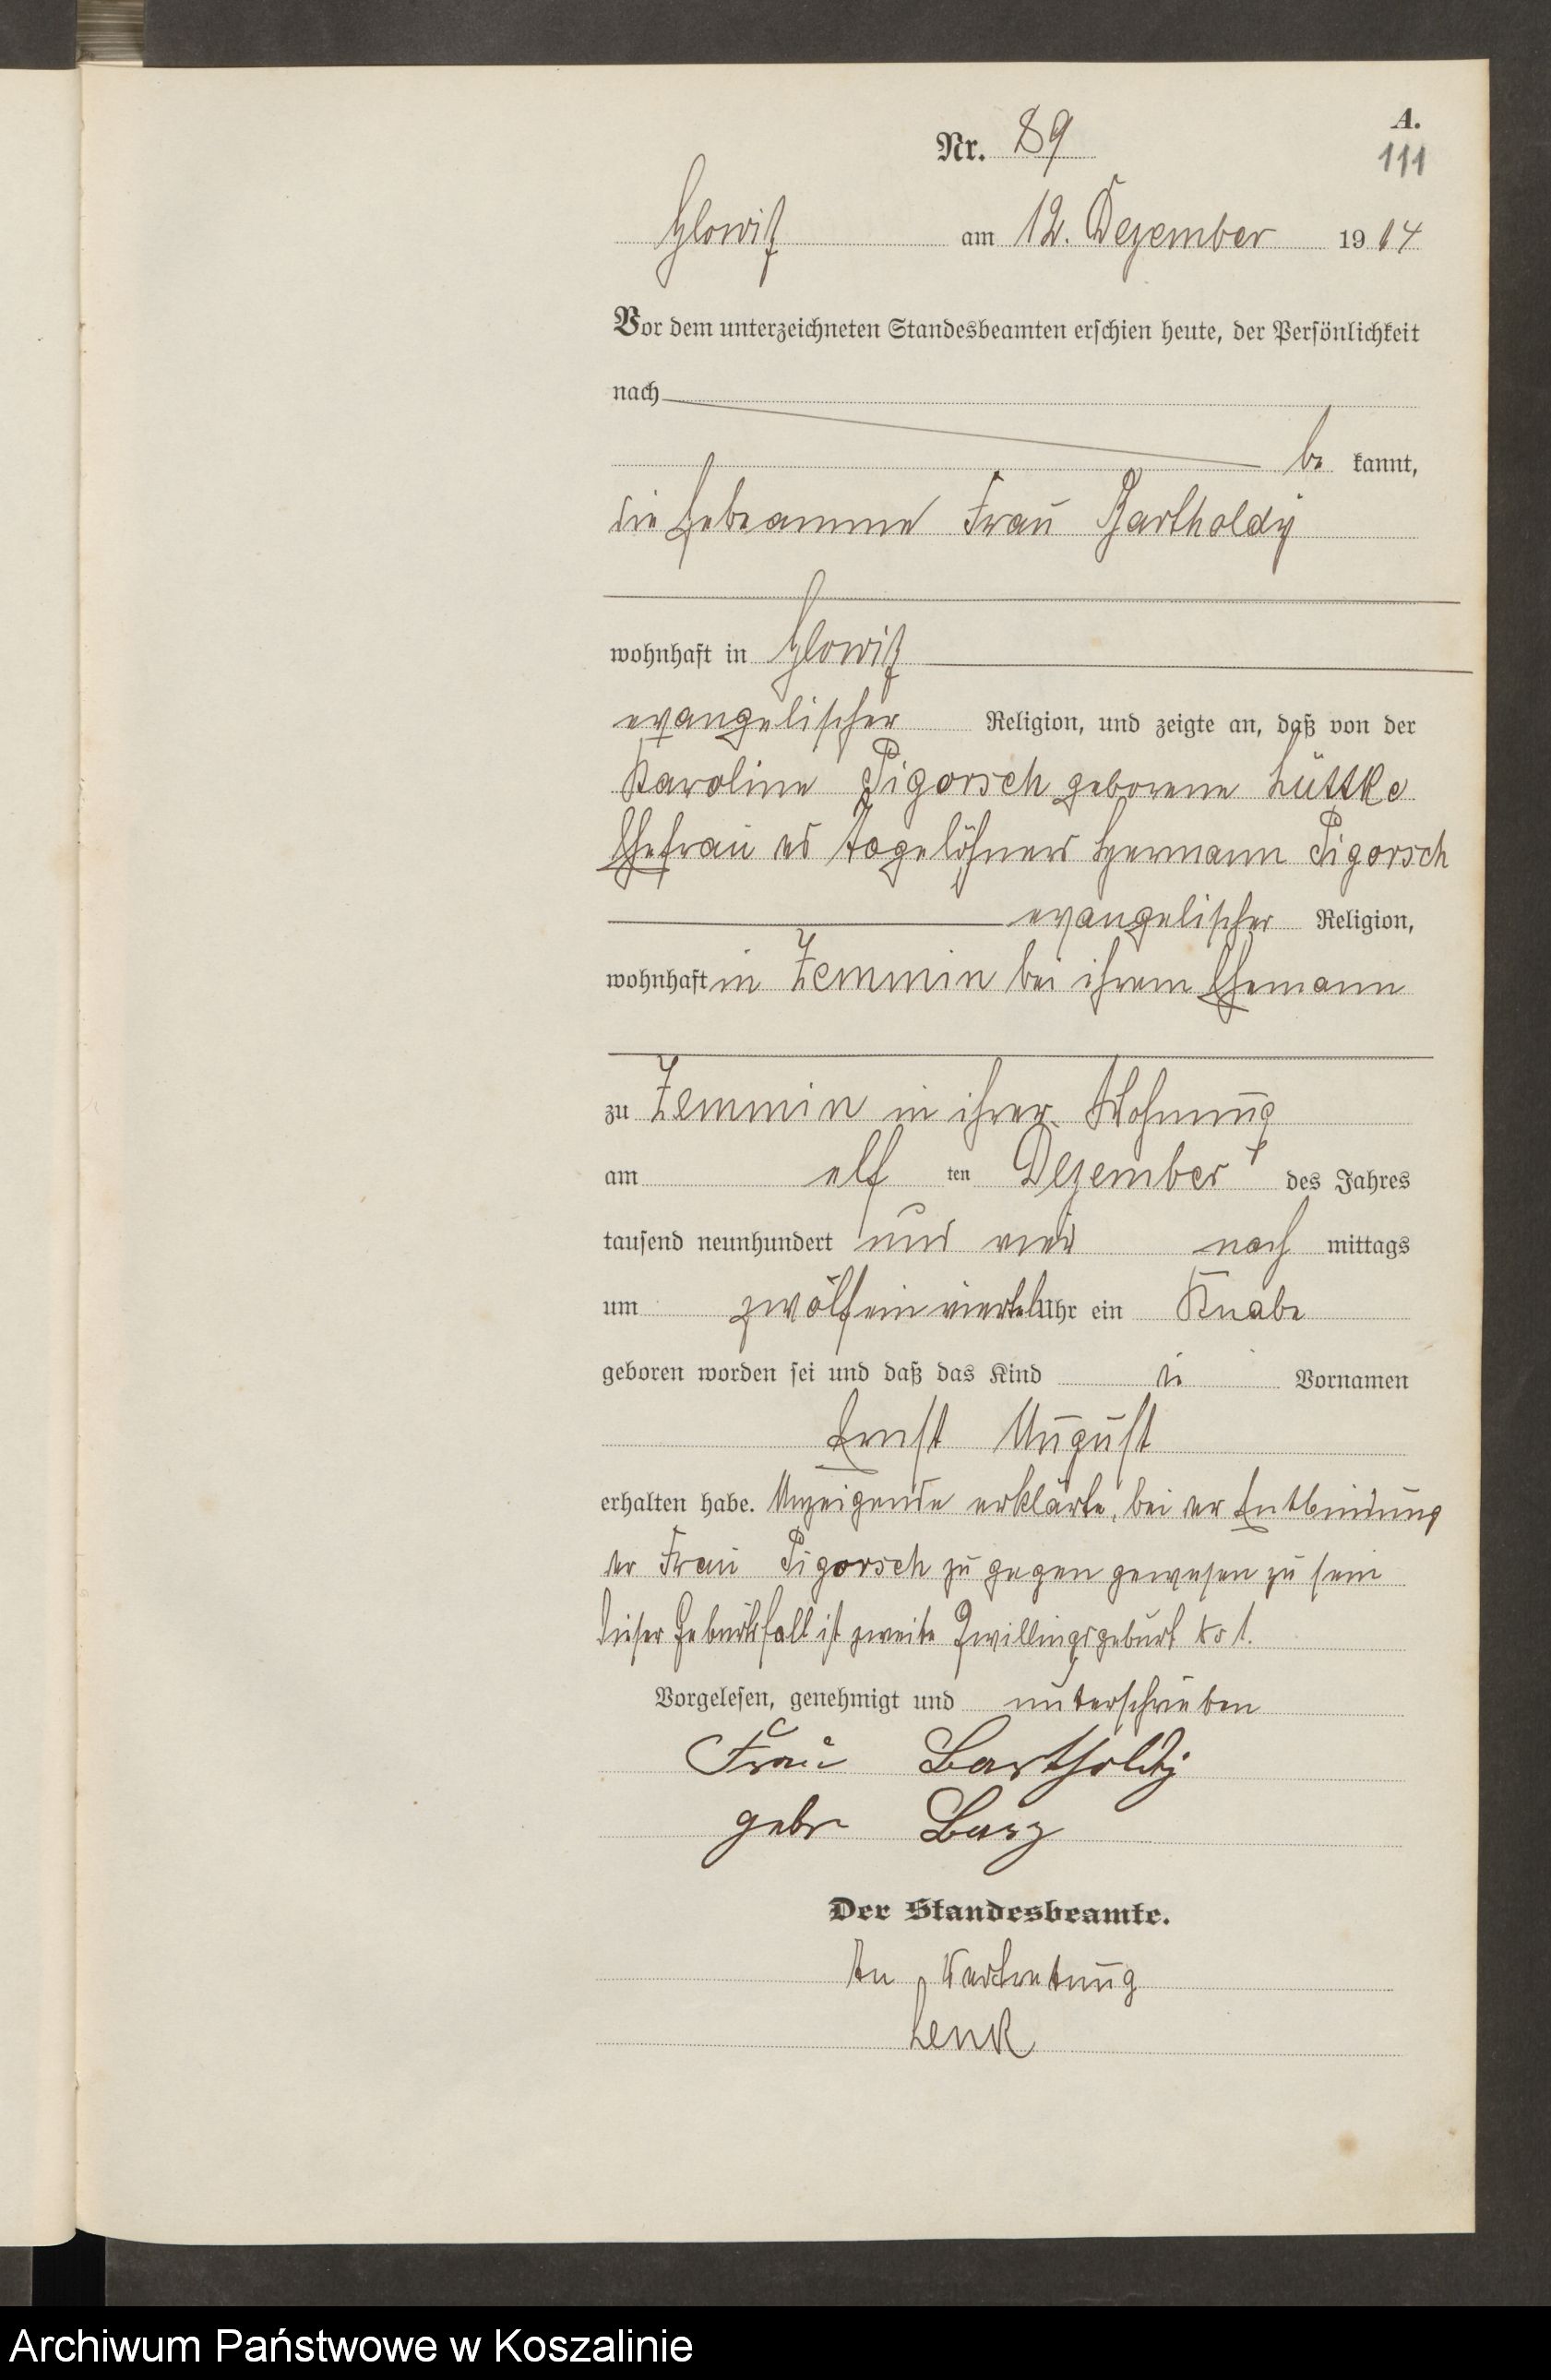 A.
Nr. 89
111
Glowitz am 12. Dezember 1904
Vor dem unterzeichneten Standesbeamten erschien heute, der Persönlichkeit
nach
be kannt,
die Hebeamme Frau Bartholdy
wohnhaft in Glowitz
evangelischer Religion, und zeigte an, daß von der
Karoline Pigorsch geborene Lüttke
Ehefrau des Tagelöhners Hermann Pigorsch
evangelischer Religion,
wohnhaft in Zemmin bei ihrem Ehemann
zu Zemmin in ihrer Wohnung
am elf ten Dezember des Jahres
tausend neunhundert und vier nach mittags
um zwölf ein viertel Uhr ein Knabe
geboren worden sei und daß das Kind die Vornamen
Ernst August
erhalten habe. Anzeigende erklärte, bei der Entbindung
der Frau Pigorsch zu gegen gewesen zu sein
Dieser Geburtsfall ist zweite Zwillingsgeburt
Vorgelesen, genehmigt und unterschrieben
Frau Bartholdy
gebr
Der Standesbeamte.
In Vertretung
Lenk
Archiwum Państwowe w Koszalinie